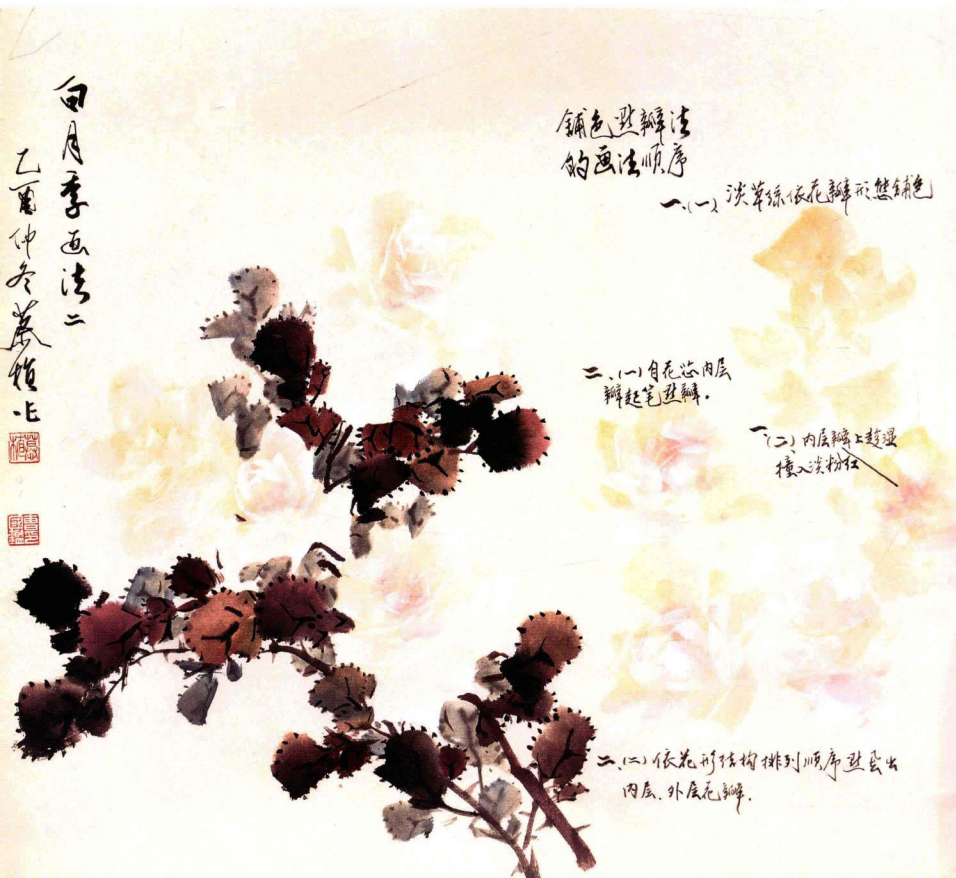 白月季画法二
乙酉仲冬慕植作
鋪色點瓣法
的画法顺序
一、(一)、淡草绿依花瓣形態鋪色
二、(一)自花芯内层
瓣起笔點瓣.
一(二)、内层瓣上趁湿
撞入淡粉红
二、(二)依花形结构排列顺序點画出
内层、外层花瓣.